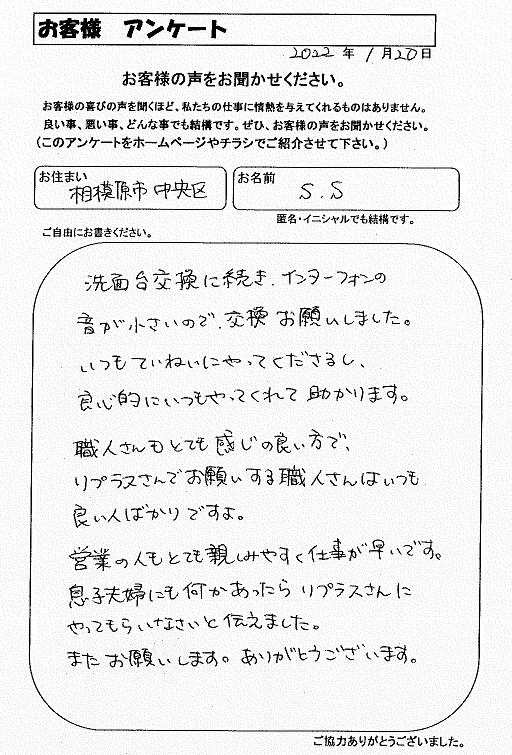 お客様 アンケート
2022 年 1 月 20 日
お客様の声をお聞かせください。
お客様の喜びの声を聞くほど、私たちの仕事に情熱を与えてくれるものはありません。
良い事、悪い事、どんな事でも結構です。ぜひ、お客様の声をお聞かせください。
(このアンケートをホームページやチラシでご紹介させて下さい。)
お住まい 相模原市 中央区
お名前 S.S
匿名・イニシャルでも結構です。
ご自由にお書きください。
洗面台交換に続き、インターフォンの
音が小さいので、交換お願いしました。
いつもていねいにやってくださるし、
良心的にいつもやってくれて助かります。
職人さんもとても感じの良い方で、
リプラスさんでお願いする職人さんはいつも
良い人ばかりですよ。
営業の人もとても親しみやすく仕事が早いです。
息子夫婦にも何かあったらリプラスさんに
やってもらいなさいと伝えました。
またお願いします。ありがとうございます。
ご協力ありがとうございました。